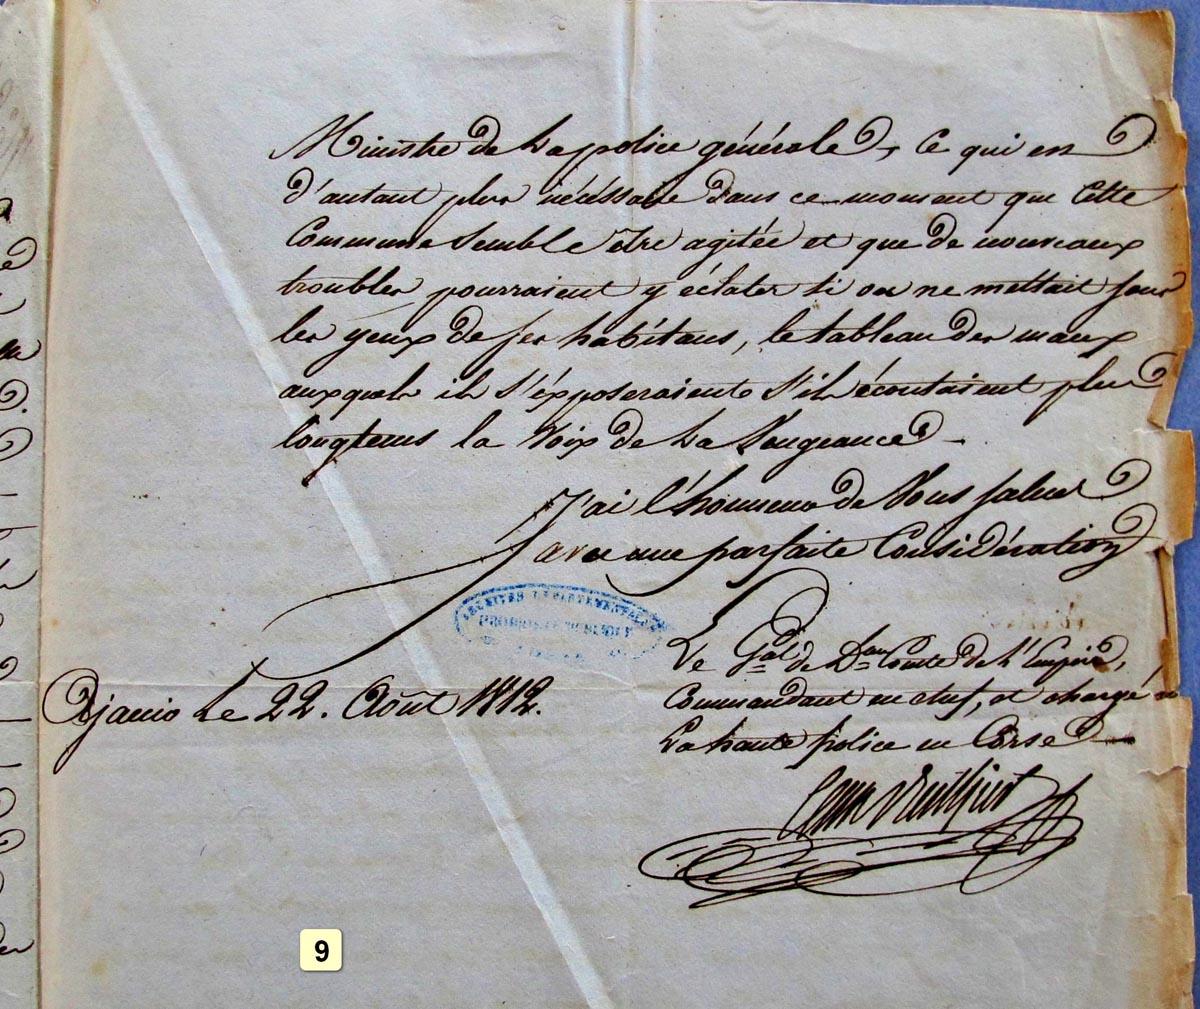 Ministre de la police générale, ce qui est
d'autant plus nécéssaire dans ce moment que cette
Commune semble être agitée et que de nouveaux
troubles pourraient y éclater si on ne mettait sous
les yeux de ses habitans, le tableau des maux
auxquels ils s'éxposeraient s'ils écoutaient plus
longtems la voix de la Vengeance
J'ai l'honneur de Vous saluer
avec une parfaite Considération
ARCHIVES DÉPARTEMENTALES
PROPRIÉTÉ PUBLIQUE
Le Gal de Don Comte de l'Empire,
Ajaccio Le 22. Août 1812.
Commandant en chef, et chargé
La haute police en Corse
9